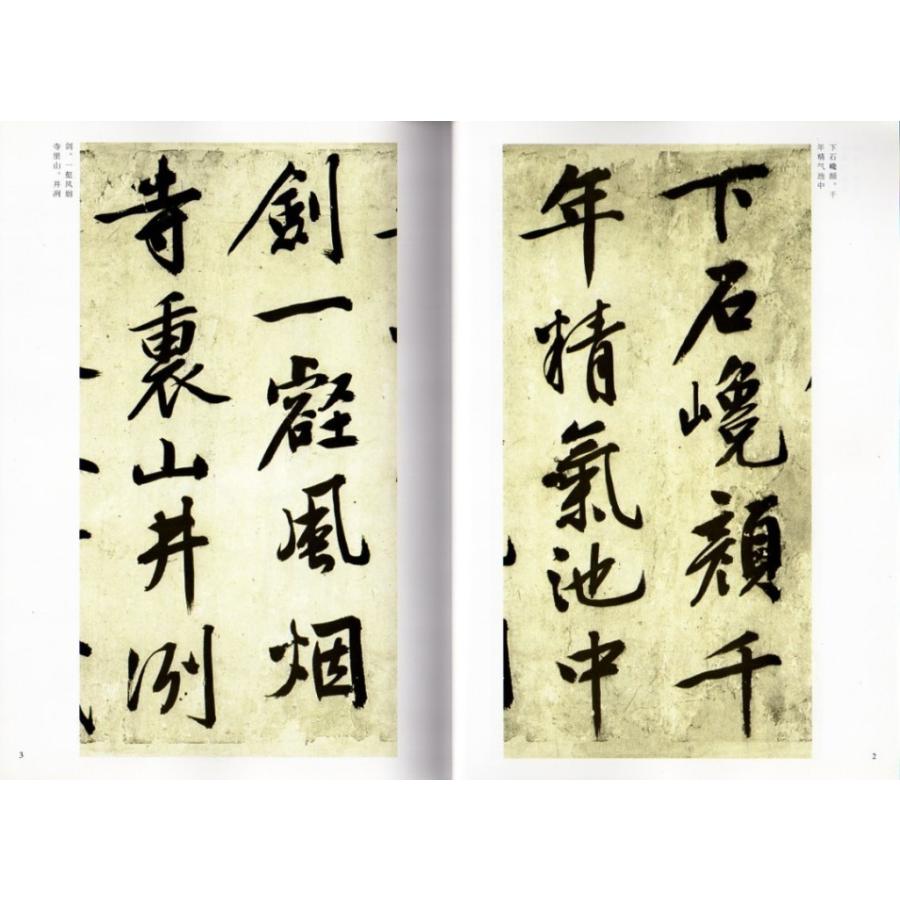 下石巉颜。千
年精气池中
下石巉顏千
年精氣池中
2
劍一壑風烟
寺裏山井冽
剑。一壑风烟
寺里山。井冽
3